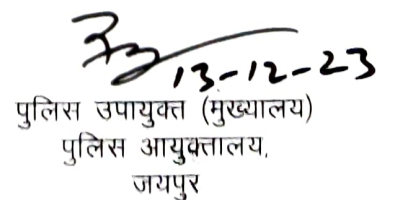 13-12-23
पुलिस उपायुक्त (मुख्यालय)
पुलिस आयुक्तालय,
जयपुर